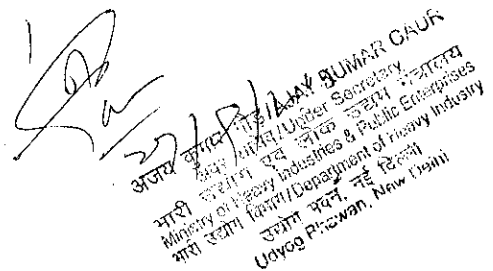 अजय कुमार गौड़/AJAY KUMAR GAUR
अवर सचिव/Under Secretary
भारी उद्योग एवं लोक उद्यम मंत्रालय
Ministry of Heavy Industries & Public Enterprises
भारी उद्योग विभाग/Department of Heavy Industry
उद्योग भवन, नई दिल्ली
Udyog Bhawan, New Delhi